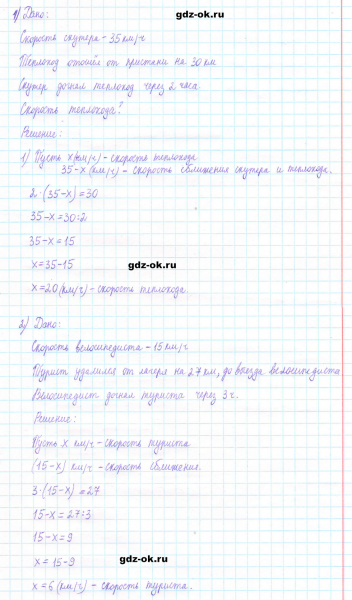 gdz-ok.ru
1) Дано:
Скорость скутера - 35 км/ч
Теплоход отошёл от пристани на 30 км
Скутер догнал теплоход через 2 часа
Скорость теплохода?
Решение:
1) Пусть x (км/ч) - скорость теплохода
35-x (км/ч) - скорость сближения скутера и теплохода.
2·(35-x)=30
35-x=30:2
35-x=15
gdz-ok.ru
x=35-15
x=20 (км/ч) - скорость теплохода
2) Дано:
Скорость велосипедиста - 15 км/ч
Турист удалился от лагеря на 27 км, до выезда велосипедиста
Велосипедист догнал туриста через 3 ч.
Решение:
Пусть x км/ч - скорость туриста
(15-x) км/ч - скорость сближения.
3·(15-x)=27
15-x=27:3
15-x=9
x=15-9
gdz-ok.ru
x=6 (км/ч) - скорость туриста.